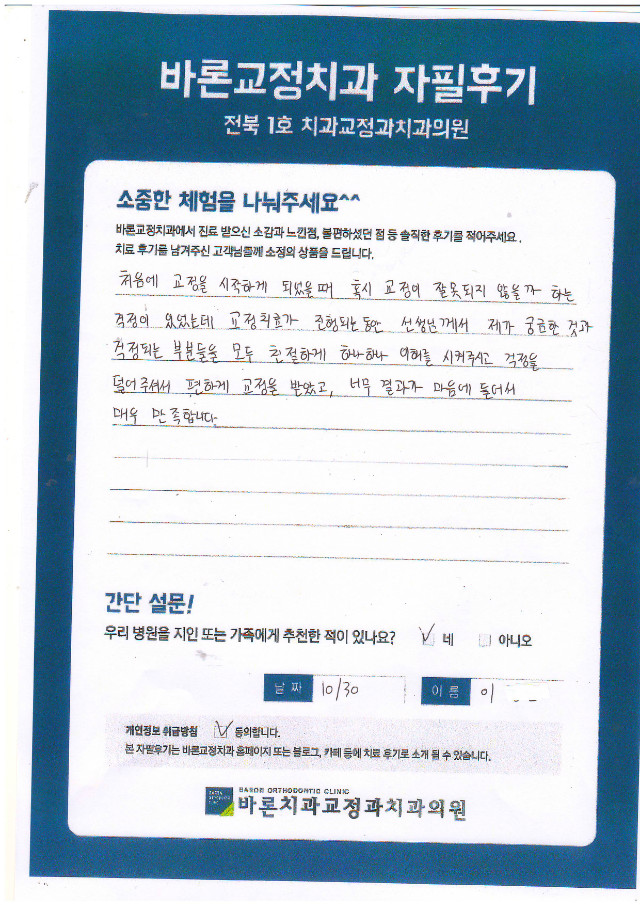 바론교정치과 자필후기
전북 1호 치과교정과치과의원
소중한 체험을 나눠주세요^^
바론교정치과에서 진료 받으신 소감과 느낀점, 불편하셨던 점 등 솔직한 후기를 적어주세요.
치료 후기를 남겨주신 고객님들께 소정의 상품을 드립니다.
처음에 교정을 시작하게 되었을때 혹시 교정이 잘못되지 않을까 하는
걱정이 있었는데 교정치료가 진행되는동안 선생님께서 제가 궁금한 것과
걱정되는 부분들을 모두 친절하게 하나하나 이해를 시켜주시고 걱정을
덜어주셔서 편하게 교정을 받았고, 너무 결과가 마음에 들어서
매우 만족합니다.
간단 설문!
우리 병원을 지인 또는 가족에게 추천한 적이 있나요? 네 아니오
날짜 10/30 이름 이
개인정보 취급방침 동의합니다.
본 자필후기는 바론교정치과 홈페이지 또는 블로그, 카페 등에 치료 후기로 소개 될 수 있습니다.
BARON ORTHODONTIC CLINIC
바론치과교정과치과의원